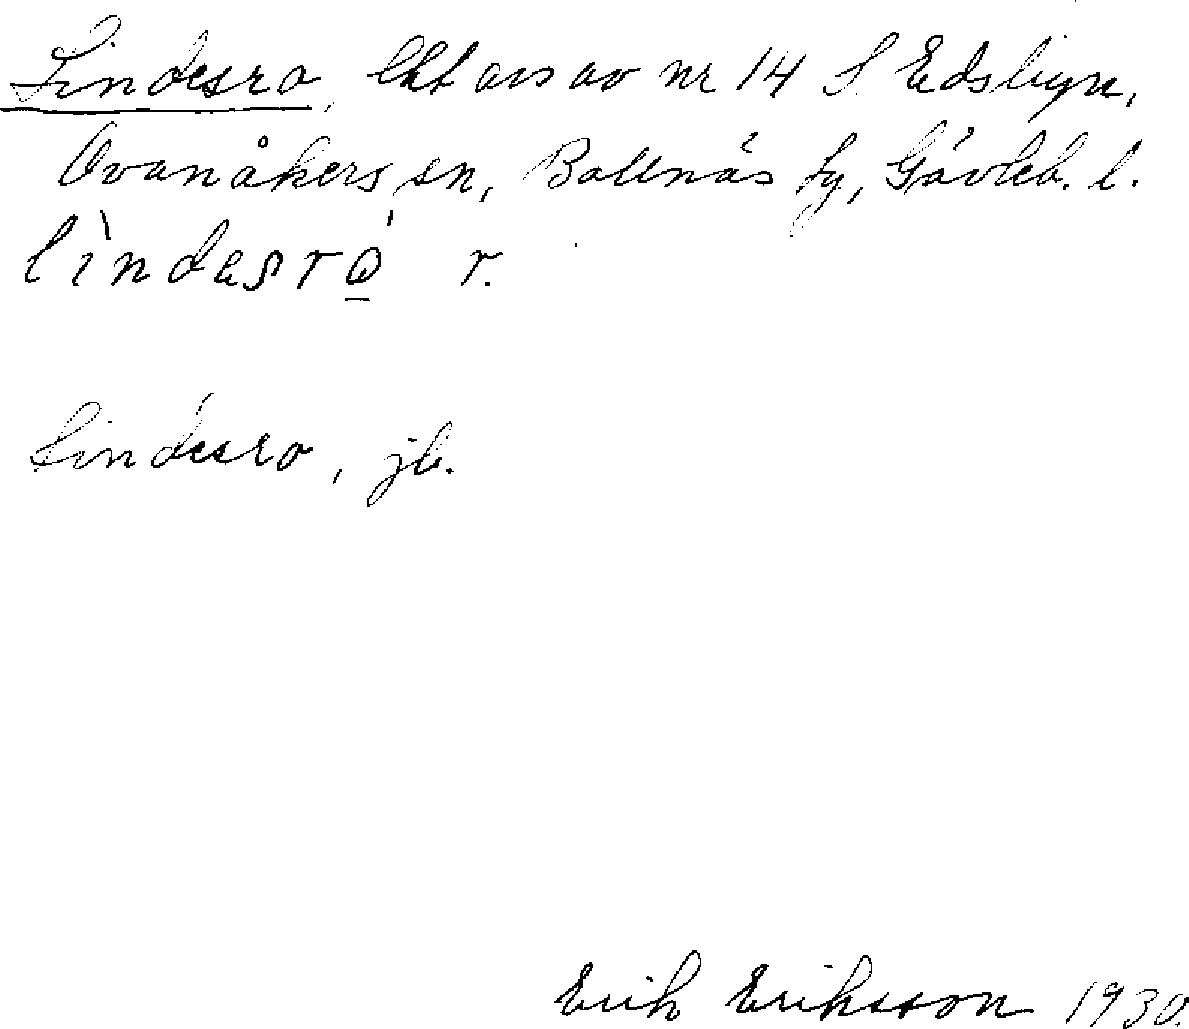 Lindesro, lht avs av nr 14 S. Edsbyn,
Ovanåkers sn, Bollnäs fg, Gävleb. l.
lìndesro̱ ́ r.
Lindesro, jb.
Erik Eriksson 1930.